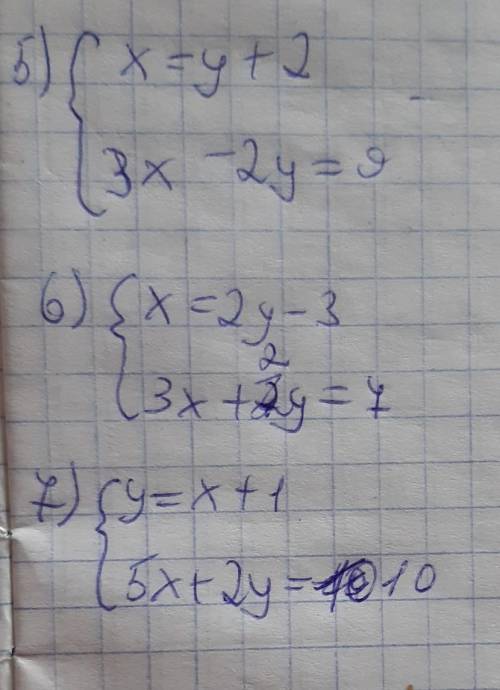 5) x = y + 2
3x - 2y = 9
6) x = 2y - 3
3x + 2y = 7
7) y = x + 1
5x + 2y = 10